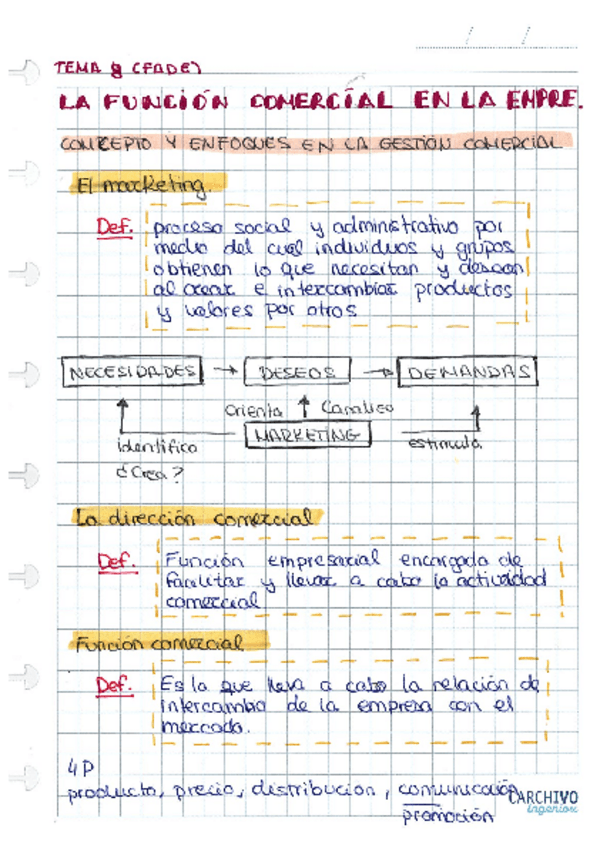 TEMA 8 (FADE)
LA FUNCIÓN COMERCÍAL EN LA EMPRE.
CONCEPTO Y ENFOQUES EN LA GESTIÓN COMERCIAL
El marketing.
Def. proceso social y administrativo por
medio del cual individuos y grupos
obtienen lo que necesitan y desean
al crear e intercambiar productos
y valores por otros
NECESIDADES → DESEOS → DEMANDAS
orienta ↑ Canaliza
MARKETING
identifica
estimula.
¿Crea?
La dirección comercial
Def. Función empresarial encargada de
facilitar y llevar a cabo la actividad
comercial
Función comercial
Def. Es la que lleva a cabo la relación de
intercambio de la empresa con el
mercado.
4P
producto, precio, distribucion, comunicación
promoción
ARCHIVO
ingenioso